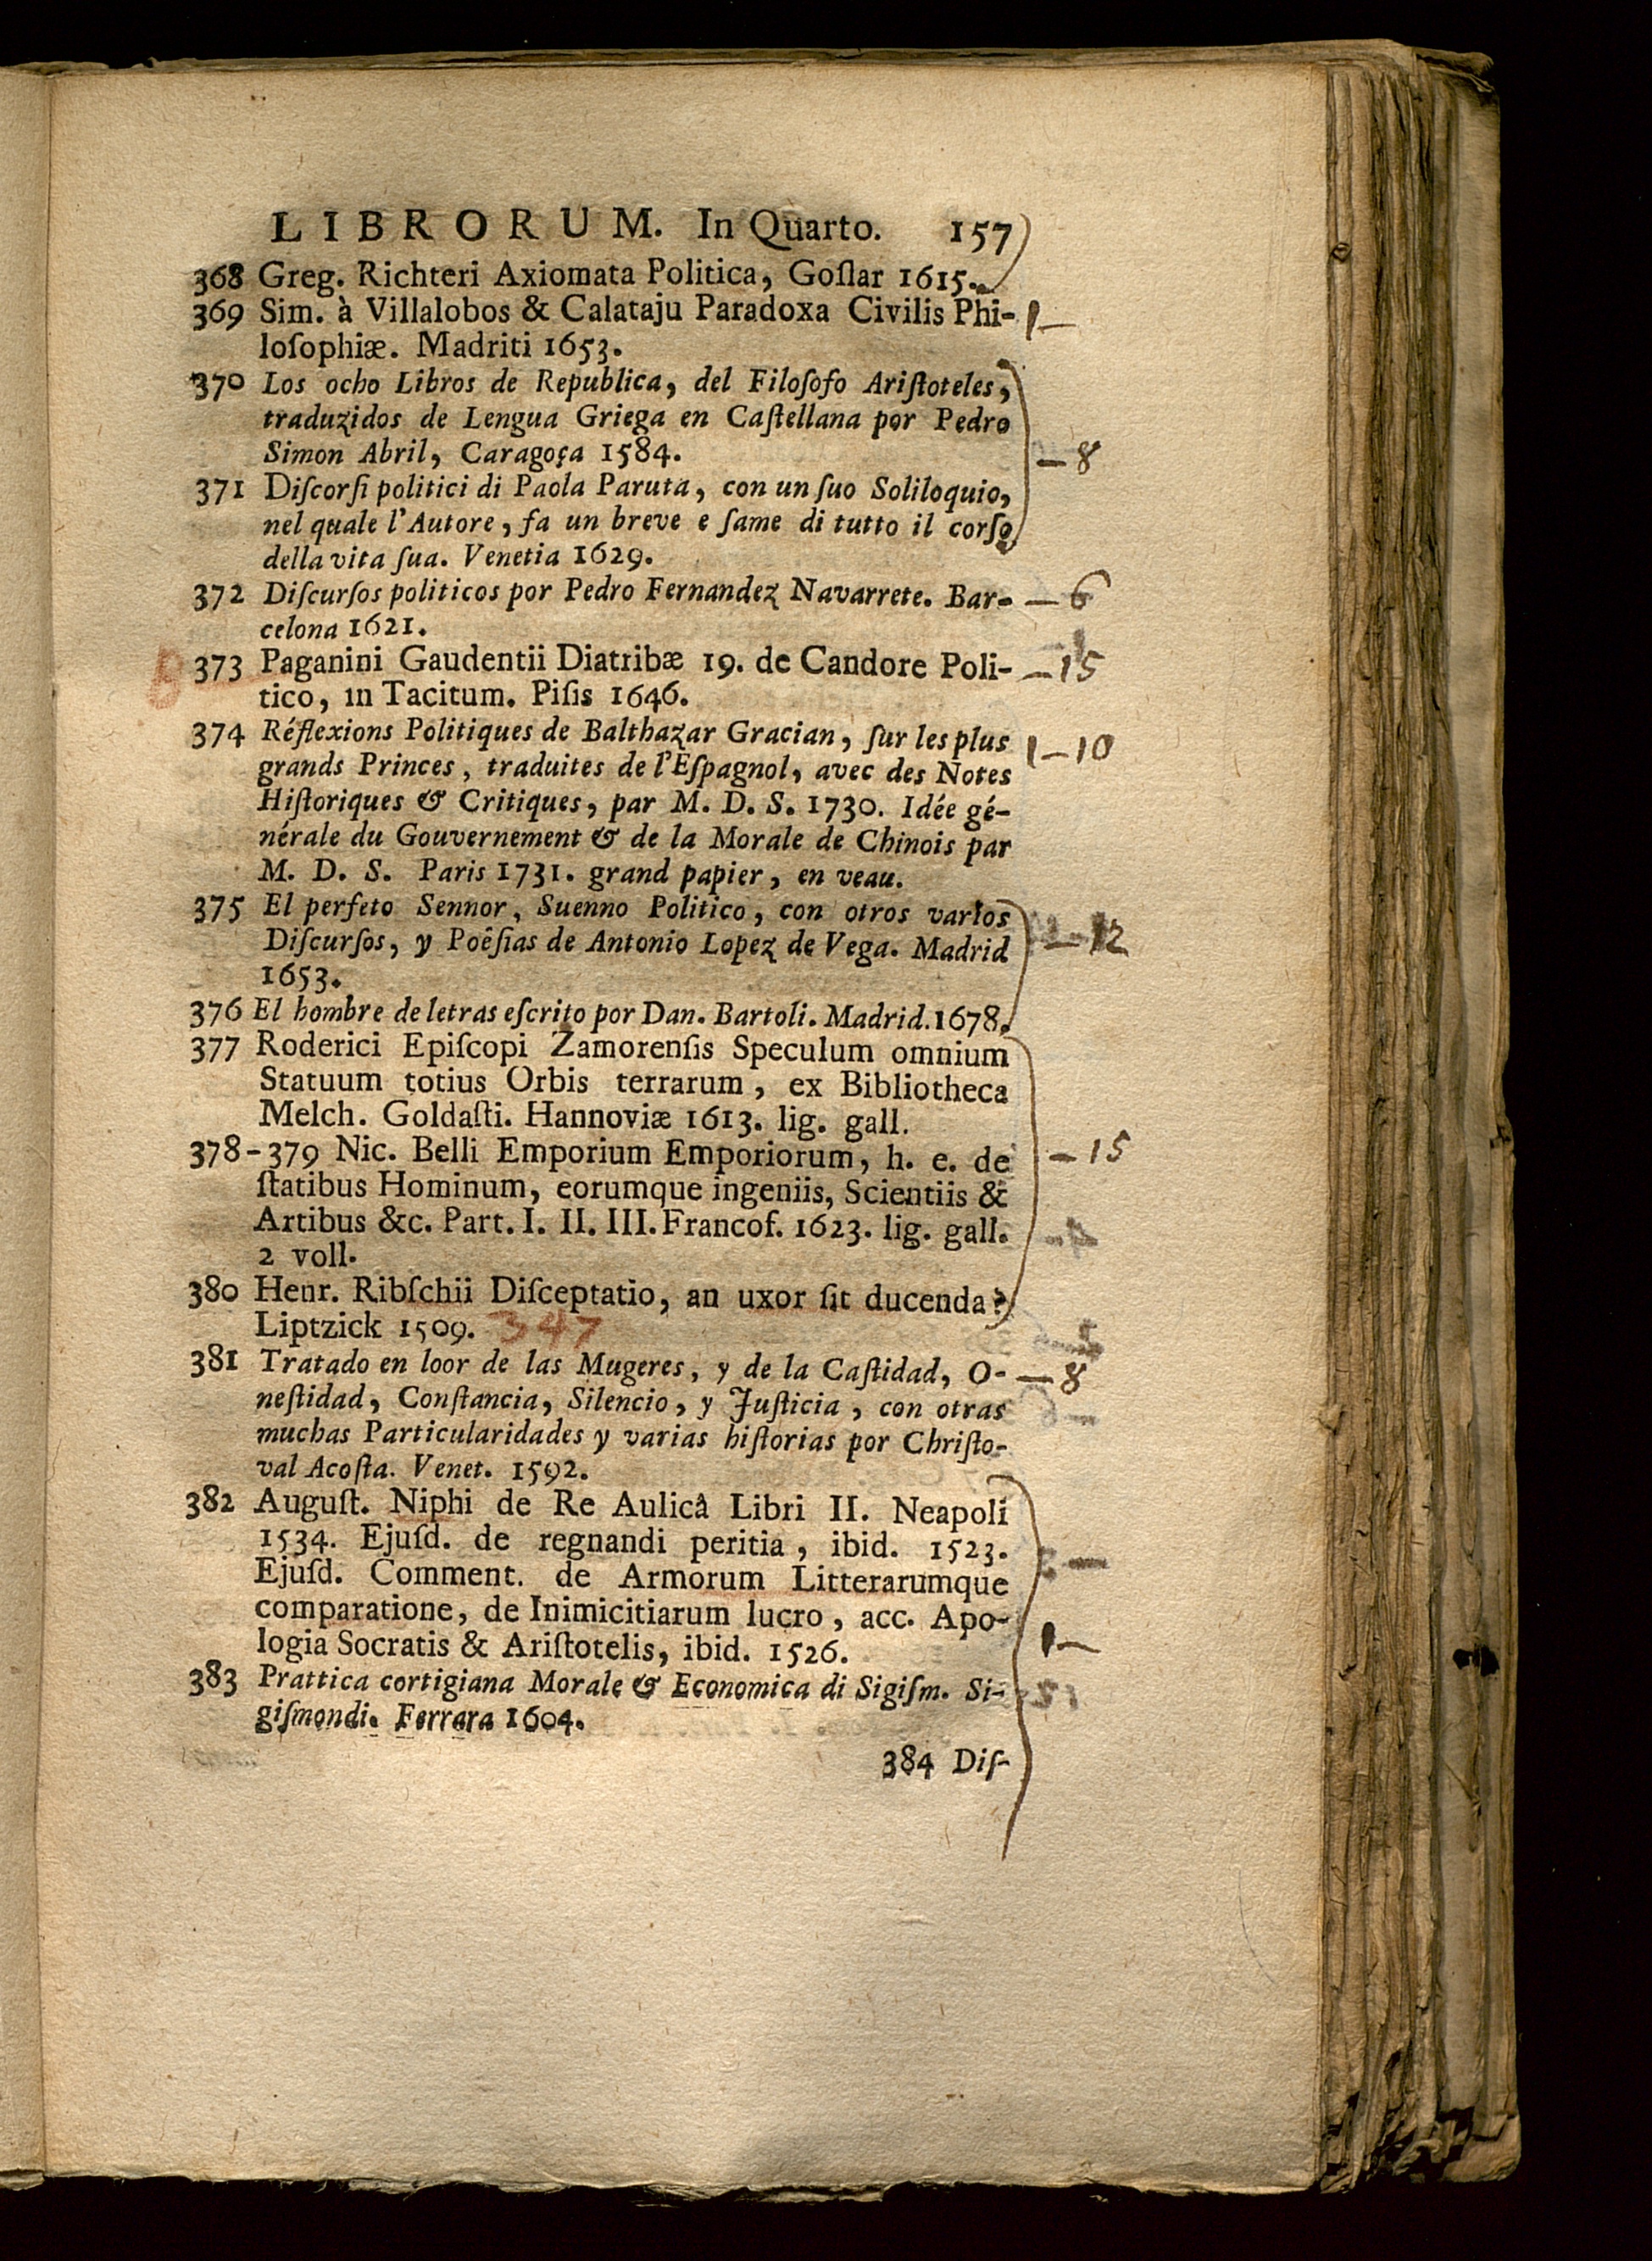 LIBRORUM. In Quarto. 157
368 Greg. Richteri Axiomata Politica, Goſlar 1615.
369 Sim. à Villalobos & Calataju Paradoxa Civilis Phi- 1—
loſophiæ. Madriti 1653.
370 Los ocho Libros de Republica, del Filoſofo Ariſtoteles,
traduzidos de Lengua Griega en Caſtellana por Pedro
Simon Abril, Caragoça 1584. —8
371 Diſcorſi politici di Paola Paruta, con un ſuo Soliloquio,
nel quale l'Autore, fa un breve e ſame di tutto il corſo
della vita ſua. Venetia 1629.
372 Diſcurſos politicos por Pedro Fernandez Navarrete. Bar- —6
celona 1621.
373 Paganini Gaudentii Diatribæ 19. de Candore Poli- —15
tico, in Tacitum. Piſis 1646.
374 Réflexions Politiques de Balthazar Gracian, ſur les plus 1—10
grands Princes, traduites de l'Eſpagnol, avec des Notes
Hiſtoriques & Critiques, par M. D. S. 1730. Idée gé-
nérale du Gouvernement & de la Morale de Chinois par
M. D. S. Paris 1731. grand papier, en veau.
375 El perfeto Sennor, Suenno Politico, con otros varios
Diſcurſos, y Poêſias de Antonio Lopez de Vega. Madrid —12
1653.
376 El hombre de letras eſcrito por Dan. Bartoli. Madrid. 1678.
377 Roderici Epiſcopi Zamorenſis Speculum omnium
Statuum totius Orbis terrarum, ex Bibliotheca
Melch. Goldaſti. Hannoviæ 1613. lig. gall.
378-379 Nic. Belli Emporium Emporiorum, h. e. de —15
ſtatibus Hominum, eorumque ingeniis, Scientiis &
Artibus &c. Part. I. II. III. Francof. 1623. lig. gall.
2 voll.
380 Henr. Ribſchii Diſceptatio, an uxor ſit ducenda?
Liptzick 1509. 347
381 Tratado en loor de las Mugeres, y de la Caſtidad, O- —8
neſtidad, Conſtancia, Silencio, y Juſticia, con otras
muchas Particularidades y varias hiſtorias por Chriſto-
val Acoſta. Venet. 1592.
382 Auguſt. Niphi de Re Aulicâ Libri II. Neapoli
1534. Ejuſd. de regnandi peritia, ibid. 1523.
Ejuſd. Comment. de Armorum Litterarumque
comparatione, de Inimicitiarum lucro, acc. Apo-
logia Socratis & Ariſtotelis, ibid. 1526. 1—
383 Prattica cortigiana Morale & Economica di Sigiſm. Si-
giſmondi. Ferrara 1604.
384 Diſ-